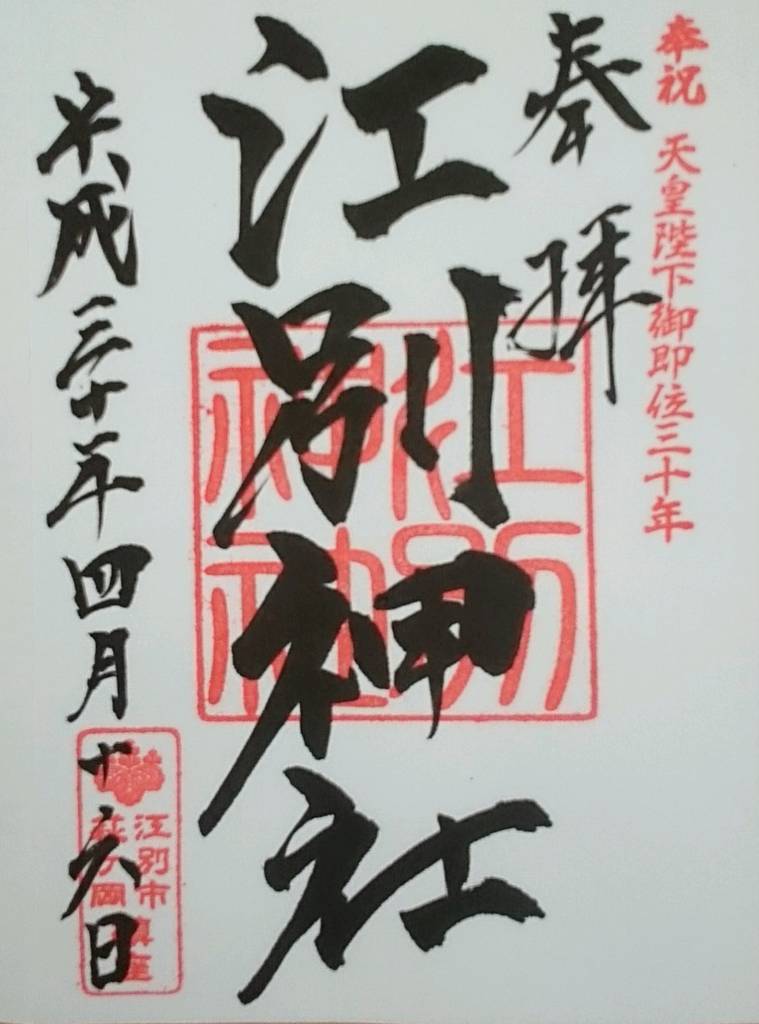 奉祝 天皇陛下御即位三十年
奉拝
江別神社
江別神社
平成三十年四月十六日
江別市
萩ヶ岡鎮座